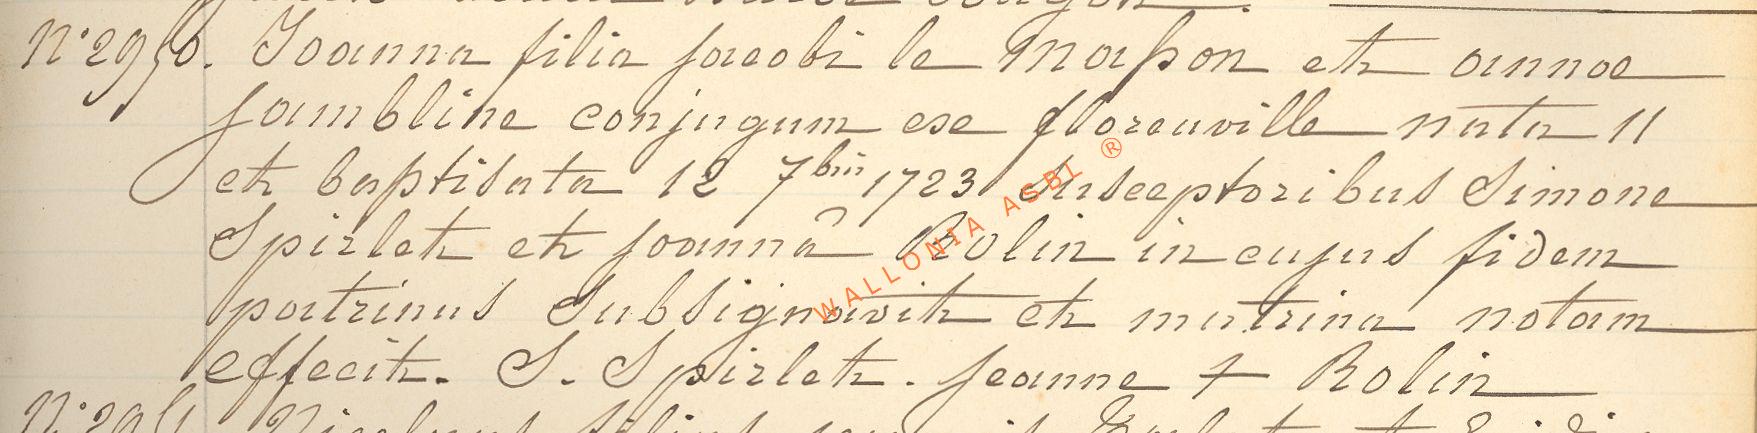 N° 2950. Joanna filia jacobi le Maßon et annae
jambline conjugum exe floreuville nata 11
et baptisata 12 7bris 1723 Susceptoribus Simone
Spirlet et joannâ Rolin in cujus fidem
patrinus Subsignavit et matrina notam
effecit. S. Spirlet. jeanne + Rolin
WALLONIA ASBL ®